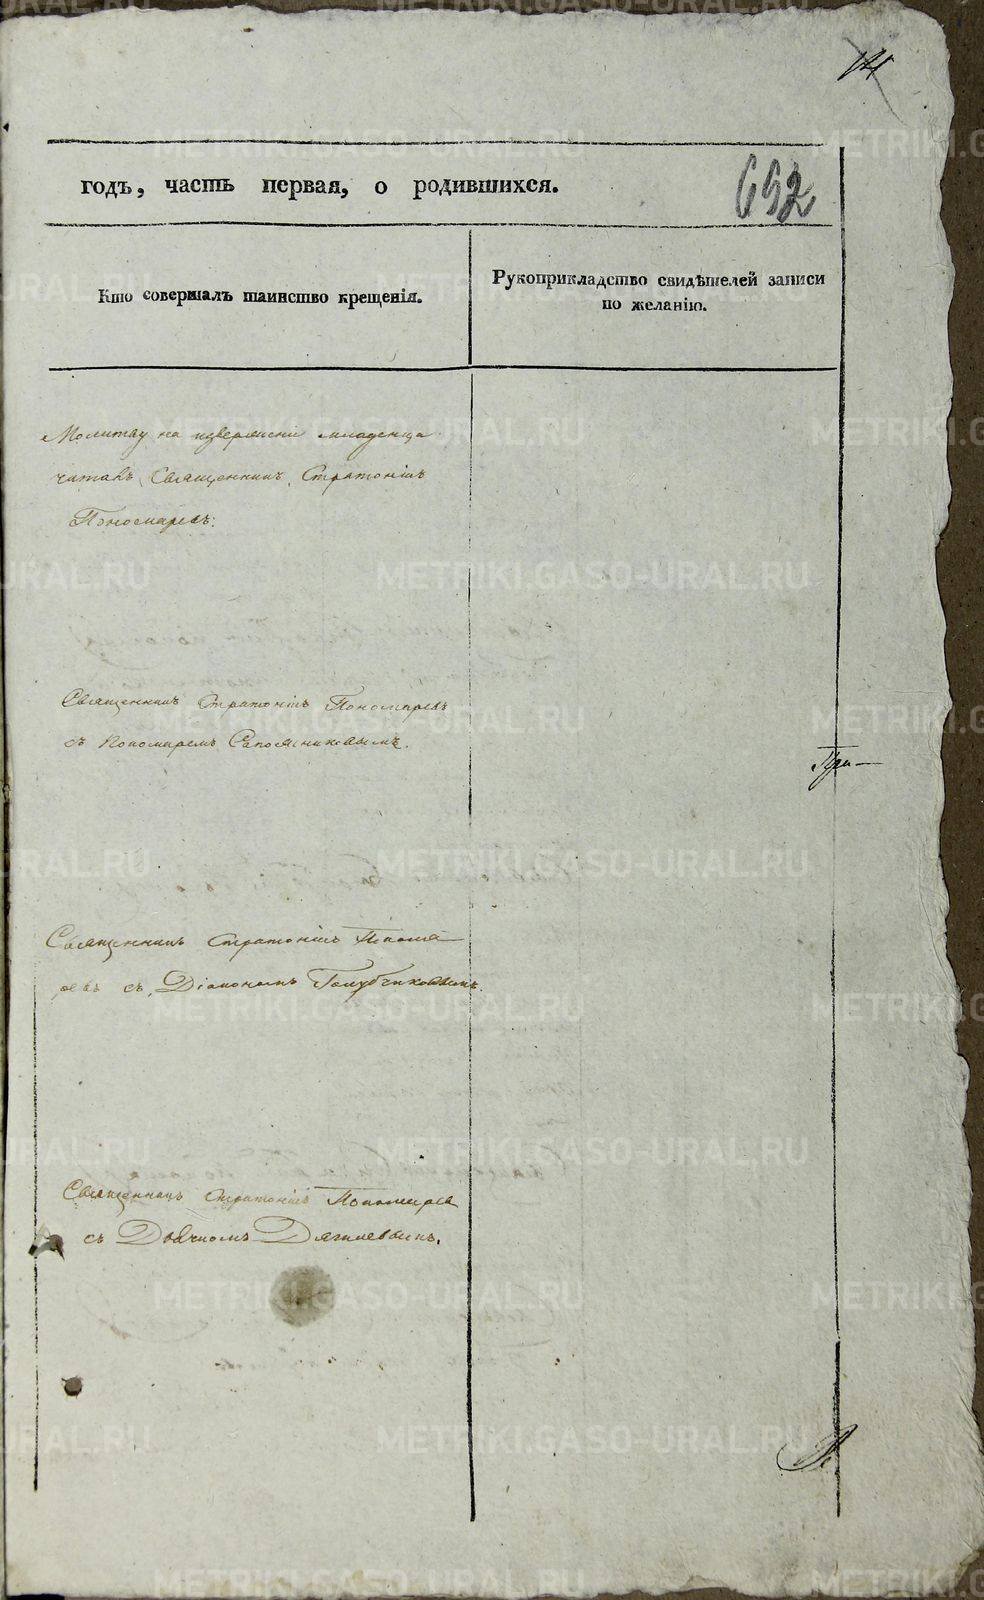 годъ, часть первая, о родившихся.
692
Кто совершалъ таинство крещенія.
Рукоприкладство свидѣтелей записи
по желанію.
Молитву на изверженіе младенца
читалъ Священникъ Стратоникъ
Пономаревъ.
Священникъ Стратоникъ Пономаревъ
съ Пономаремъ Сапожниковымъ.
При—
Священникъ Стратоникъ Понома
ревъ съ Діакономъ Голубчиковымъ.
Священникъ Стратоникъ Пономарев
съ Дьячкомъ Дягилевымъ.
METRIKI.GASO-URAL.RU